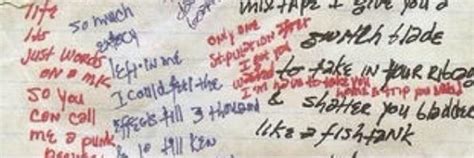 life
its
Just words
on a mic
So you
can call
me a punk
so much
left in me
I could feel the
effects till 3 thousand
& 10 till Ken
Only one
stipulation after
I got you
I'm gonna have to take you
home & strip you
mixtape I give you a
switch blade
to take in your ribcage
& shatter you bladder
like a fishtank